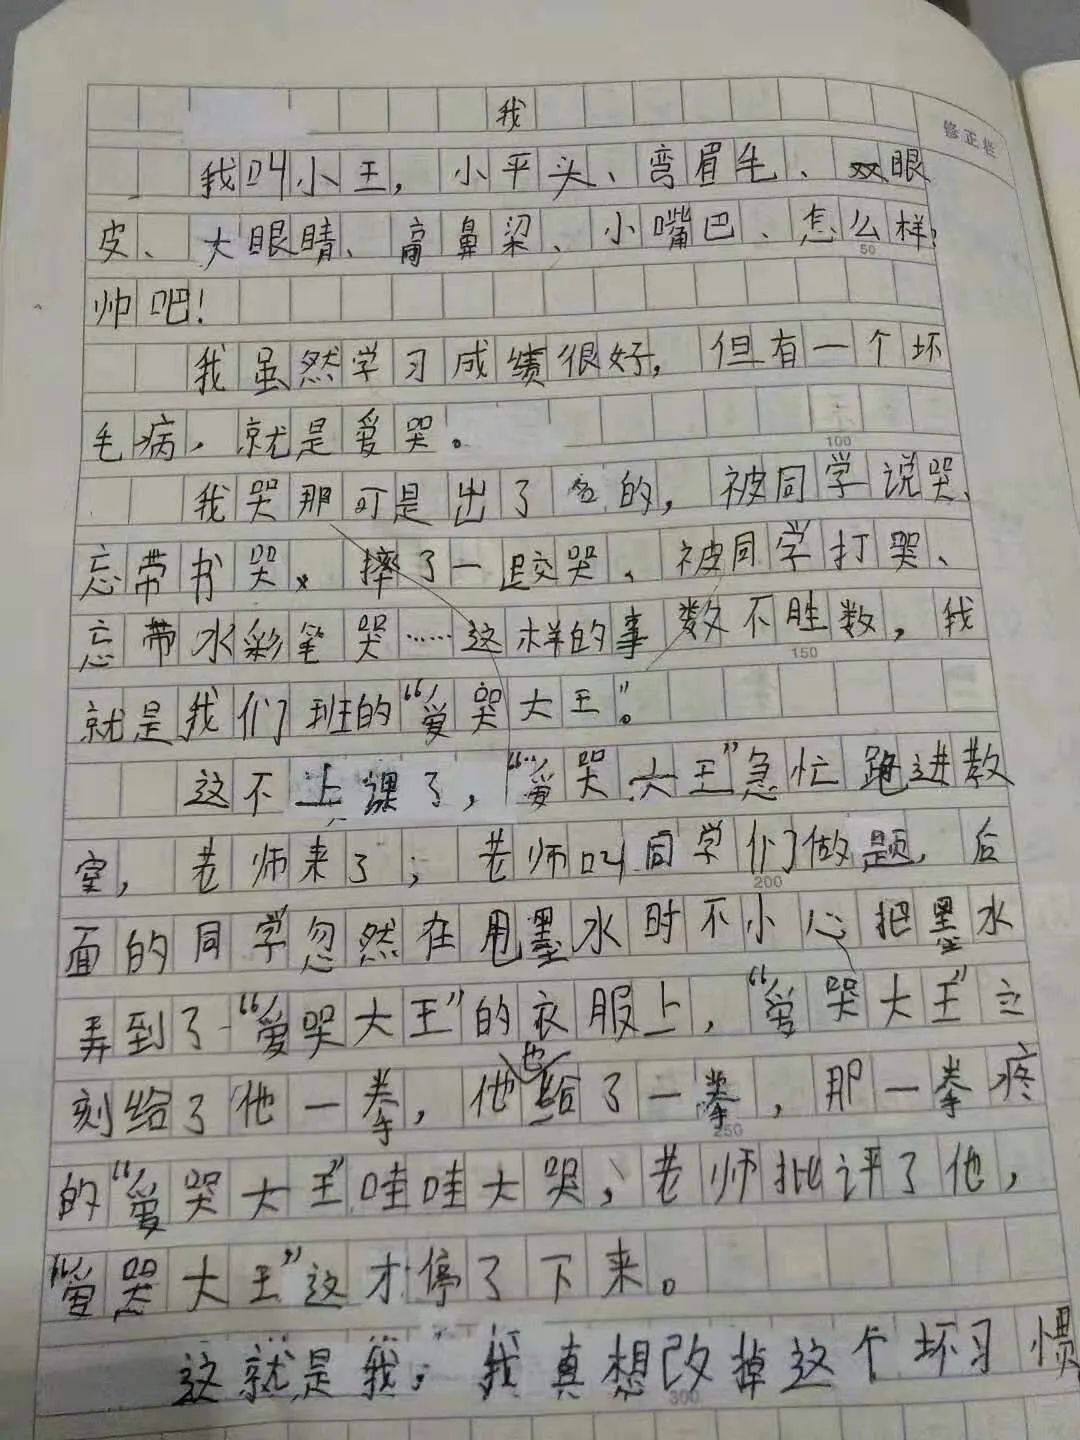 我
修正栏
我叫小王，小平头、弯眉毛、双眼
皮、大眼睛、高鼻梁、小嘴巴、怎么样，
50
帅吧！
我虽然学习成绩很好，但有一个坏
毛病，就是爱哭。
100
我哭那可是出了名的，被同学说哭、
忘带书哭、摔了一跤哭、被同学打哭、
忘带水彩笔哭……这样的事数不胜数，我
150
就是我们班的“爱哭大王”。
这不上课了，“爱哭大王”急忙跑进教
室，老师来了；老师叫同学们做题，后
200
面的同学忽然在甩墨水时不小心把墨水
弄到了“爱哭大王”的衣服上，“爱哭大王”立
刻给了他一拳，他也给了一拳，那一拳疼
250
的“爱哭大王”哇哇大哭，老师批评了他，
“爱哭大王”这才停了下来。
这就是我，我真想改掉这个坏习惯
300